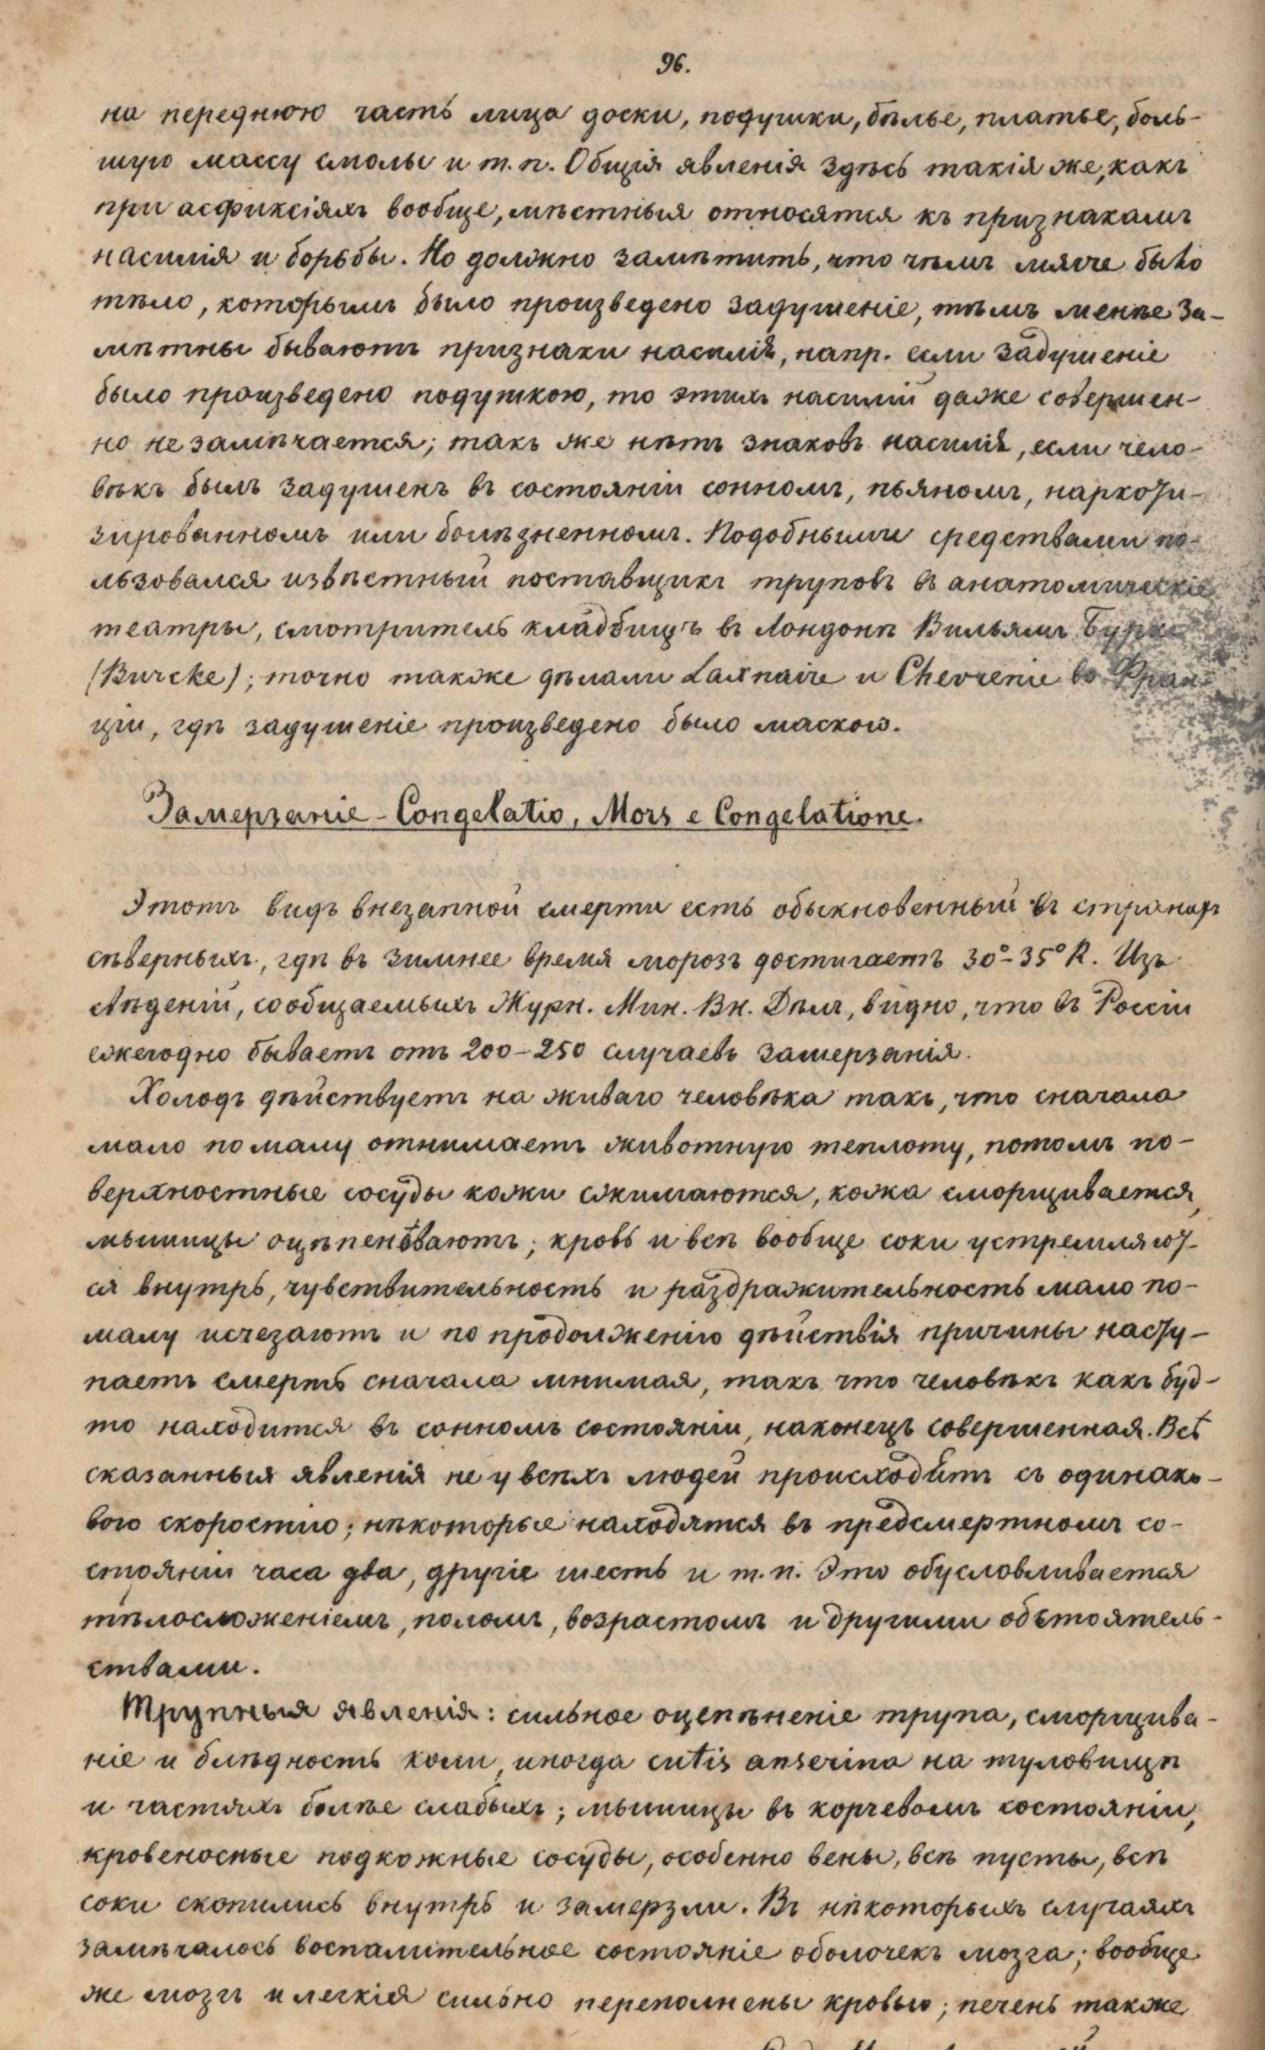 96.
на переднюю часть лица доски, подушки, бѣлье, платье, боль-
шую массу смолы и т. п. Общія явленія здѣсь такія же, какъ
при асфиксіяхъ вообще, мѣстныя относятся къ признакамъ
насилія и борьбы. Но должно замѣтить, что чѣмъ мягче было
тѣло, которымъ было произведено задушеніе, тѣмъ менѣе за-
мѣтны бываютъ признаки насилія, напр. если задушеніе
было произведено подушкою, то этихъ насилій даже совершен-
но не замѣчается; такъ же нѣтъ знаковъ насилія, если чело-
вѣкъ былъ задушенъ въ состояніи сонномъ, пьяномъ, наркоти-
зированномъ или болѣзненномъ. Подобными средствами по-
льзовался извѣстный поставщикъ труповъ въ анатомическіе
театры, смотритель кладбищъ въ Лондонѣ Вильямъ Бурке
(Burcke); точно также дѣлали Laxnaire и Chevrenie во Фран-
ціи, гдѣ задушеніе произведено было маскою.
Замерзаніе - Congelatio, Mors e Congelatione.
Этотъ видъ внезапной смерти есть обыкновенный въ странахъ
сѣверныхъ, гдѣ въ зимнее время морозъ достигаетъ 30°-35° R. Изъ
свѣденій, сообщаемыхъ Журн. Мин. Вн. Дѣлъ, видно, что въ Россіи
ежегодно бываетъ отъ 200-250 случаевъ замерзанія.
Холодъ дѣйствуетъ на живаго человѣка такъ, что сначала
мало по малу отнимаетъ животную теплоту, потомъ по-
верхностные сосуды кожи сжимаются, кожа сморщивается,
мышицы оцѣпенѣваютъ; кровь и всѣ вообще соки устремляют-
ся внутрь, чувствительность и раздражительность мало по-
малу исчезаютъ и по продолженію дѣйствія причины насту-
паетъ смерть сначала мнимая, такъ что человѣкъ какъ буд-
то находится въ сонномъ состояніи, наконецъ совершенная. Всѣ
сказанныя явленія не у всѣхъ людей происходятъ съ одинако-
вою скоростію; нѣкоторые находятся въ предсмертномъ со-
стояніи часа два, другіе шесть и т. п. Это обусловливается
тѣлосложеніемъ, поломъ, возрастомъ и другими обстоятель-
ствами.
Трупныя явленія: сильное оцепѣненіе трупа, сморщива-
ніе и блѣдность кожи, иногда cutis anserina на туловищѣ
и частяхъ болѣе слабыхъ; мышицы въ корчевомъ состояніи,
кровеносные подкожные сосуды, особенно вены, всѣ пусты, всѣ
соки скопились внутрь и замерзли. Въ нѣкоторыхъ случаяхъ
замѣчалось воспалительное состояніе оболочекъ мозга; вообще
же мозгъ и легкія сильно переполнены кровью; печень также